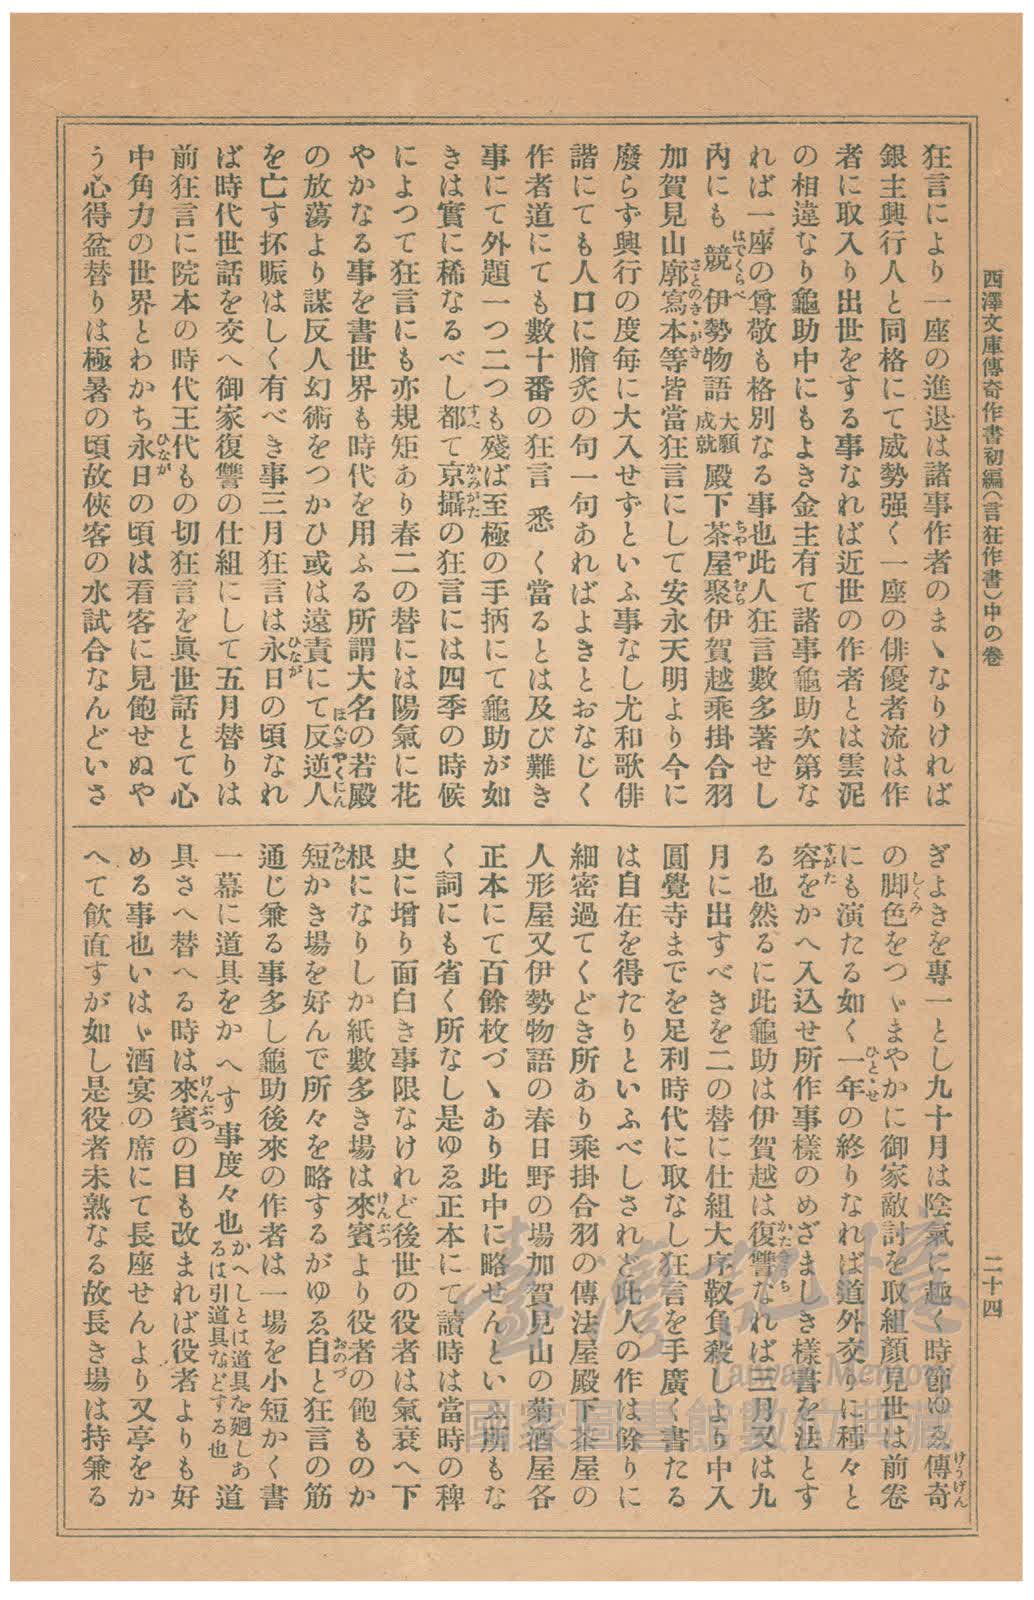 西澤文庫傳奇作書初編(言狂作書)中の卷
二十四
狂言により一座の進退は諸事作者のまゝなりければ
銀主興行人と同格にて威勢强く一座の俳優者流は作
者に取入り出世をする事なれば近世の作者とは雲泥
の相違なり龜助中にもよき金主有て諸事龜助次第な
れば一座の尊敬も格別なる事也此人狂言數多著せし
內にも競伊勢物語大願成就殿下茶屋聚伊賀越乘掛合羽
加賀見山廓寫本等皆當狂言にして安永天明より今に
廢らず興行の度每に大入せずといふ事なし尤和歌俳
諧にても人口に膾炙の句一句あればよきとおなじく
作者道にても數十番の狂言悉く當るとは及び難き
事にて外題一つ二つも殘ば至極の手柄にて龜助が如
きは實に稀なるべし都て京攝の狂言には四季の時候
によつて狂言にも亦規矩あり春二の替には陽氣に花
やかなる事を書世界も時代を用ふる所謂大名の若殿
の放蕩より謀反人幻術をつかひ或は遠責にて反逆人
を亡す抔賑はしく有べき事三月狂言は永日の頃なれ
ば時代世話を交へ御家復讐の仕組にして五月替りは
前狂言に院本の時代王代もの切狂言を眞世話とて心
中角力の世界とわかち永日の頃は看客に見飽せぬや
う心得盆替りは極暑の頃故俠客の水試合なんどいさ
ぎよきを專一とし九十月は陰氣に趣く時節ゆゑ傳奇
の脚色をつゞまやかに御家敵討を取組顏見世は前卷
にも演たる如く一年の終りなれば道外交りに種々と
容をかへ入込せ所作事樣のめざましき樣書を法とす
る也然るに此龜助は伊賀越は復讐なれば三月又は九
月に出すべきを二の替に仕組大序靱負殺しより中入
圓覺寺までを足利時代に取なし狂言を手廣く書たる
は自在を得たりといふべしされど此人の作は餘りに
細密過てくどき所あり乘掛合羽の傳法屋殿下茶屋の
人形屋又伊勢物語の春日野の場加賀見山の菊酒屋各
正本にて百餘枚づゝあり此中に略せんといふ所もな
く詞にも省く所なし是ゆゑ正本にて讀時は當時の稗
史に增り面白き事限なけれど後世の役者は氣衰へ下
根になりしか紙數多き場は來賓より役者の飽ものか
短かき場を好んで所々を略するがゆゑ自と狂言の筋
通じ兼る事多し龜助後來の作者は一場を小短かく書
一幕に道具をかへす事度々也かへしとは道具を廻しあるは引道具などする也道
具さへ替へる時は來賓の目も改まれば役者よりも好
める事也いはゞ酒宴の席にて長座せんより又亭をか
へて飮直すが如し是役者未熟なる故長き場は持兼る
臺灣記憶
Taiwan Memory
國家圖書館數位典藏